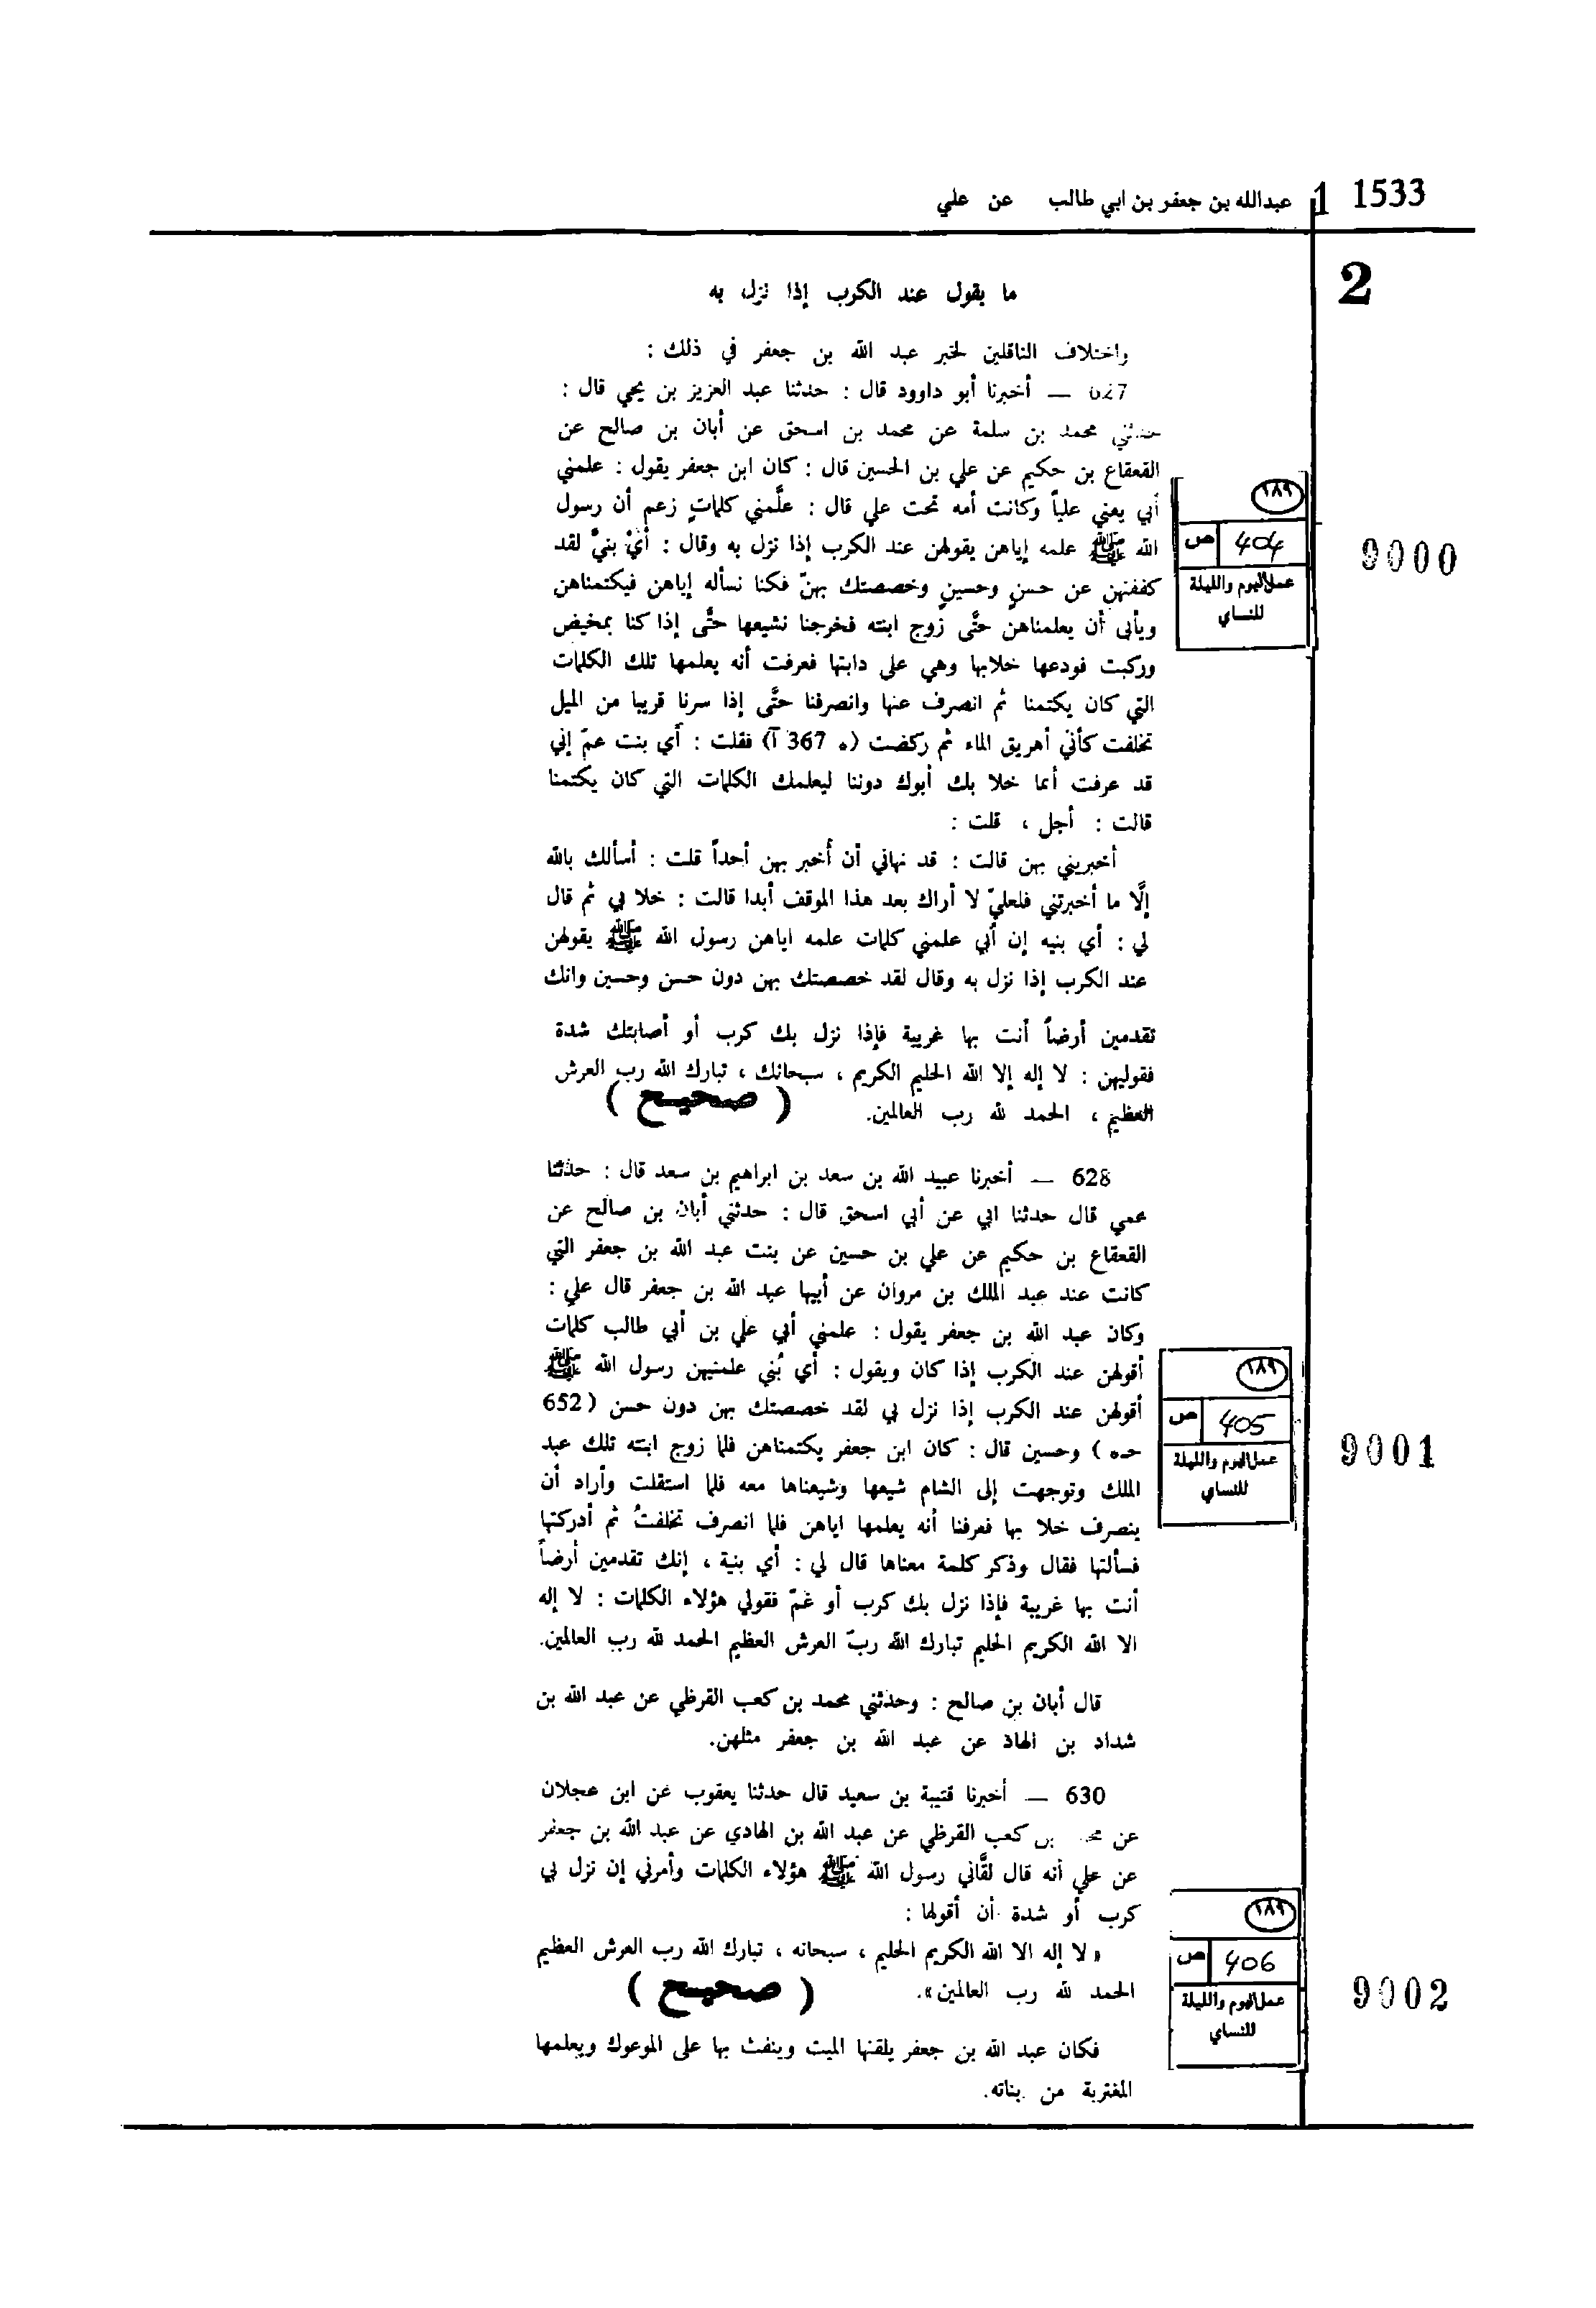 1533 1 عبدالله بن جعفر بن ابي طالب عن علي
2
ما يقول عند الكرب إذا نزل به
واختلاف الناقلين لخبر عبد الله بن جعفر في ذلك :
627 — أخبرنا أبو داوود قال : حدثنا عبد العزيز بن يحي قال :
حدثني محمد بن سلمة عن محمد بن اسحق عن أبان بن صالح عن
القعقاع بن حكيم عن علي بن الحسين قال : كان ابن جعفر يقول : علمني
أبي يعني علياً وكانت أمه تحت علي قال : علَّمني كلماتٍ زعم أن رسول
الله ﷺ علمه إياهن يقولهن عند الكرب إذا نزل به وقال : أيْ بنيَّ لقد
كففتهن عن حسنٍ وحسينٍ وخصصتك بهنّ فكنا نسأله إياهن فيكتمناهن
ويأبى أن يعلمناهن حتَّى زوج ابنته فخرجنا نشيعها حتَّى إذا كنا بمخيض
وركبت فودعها خلابها وهي على دابتها فعرفت أنه يعلمها تلك الكلمات
التي كان يكتمنا ثم انصرف عنها وانصرفنا حتَّى إذا سرنا قريبا من الميل
تخلفت كأني أهريق الماء ثم ركضت (ه 367 آ) فقلت : أي بنت عمّ إني
قد عرفت أنما خلا بك أبوك دوننا ليعلمك الكلمات التي كان يكتمنا
قالت : أجل ، قلت :
أخبريني بهن قالت : قد نهاني أن أخبر بهن أحداً قلت : أسألك بالله
إلَّا ما أخبرتني فلعليّ لا أراك بعد هذا الموقف أبدا قالت : خلا بي ثم قال
لي : أي بنيه إن أبي علمني كلمات علمه اياهن رسول الله ﷺ يقولهن
عند الكرب إذا نزل به وقال لقد خصصتك بهن دون حسن وحسين وانك
تقدمين أرضاً أنت بها غريبة فإذا نزل بك كرب أو أصابتك شدة
فقوليهن : لا إله إلا الله الحليم الكريم ، سبحانك ، تبارك الله رب العرش
العظيم ، الحمد لله رب العالمين. ( صحيح )
١٨٩
404 ص
عمل اليوم والليلة
للنساي
9000
628 — أخبرنا عبيد الله بن سعد بن ابراهيم بن سعد قال : حدثنا
عمي قال حدثنا ابي عن أبي اسحق قال : حدثني أبان بن صالح عن
القعقاع بن حكيم عن علي بن حسين عن بنت عبد الله بن جعفر التي
كانت عند عبد الملك بن مروان عن أبيها عبد الله بن جعفر قال علي :
وكان عبد الله بن جعفر يقول : علمني أبي علي بن أبي طالب كلمات
أقولهن عند الكرب إذا كان ويقول : أي بُني علمنيهن رسول الله ﷺ
أقولهن عند الكرب إذا نزل بي لقد خصصتك بهن دون حسن (652
حـه ) وحسين قال : كان ابن جعفر يكتمناهن فلما زوج ابنته تلك عبد
الملك وتوجهت إلى الشام شيعها وشيعناها معه فلما استقلت وأراد أن
ينصرف خلا بها فعرفنا أنه يعلمها اياهن فلما انصرف تخلفتُ ثم أدركتها
فسألتها فقال وذكر كلمة معناها قال لي : أي بنية ، إنك تقدمين أرضاً
أنت بها غريبة فإذا نزل بك كرب أو غمّ فقولي هؤلاء الكلمات : لا إله
الا الله الكريم الحليم تبارك الله ربّ العرش العظيم الحمد لله رب العالمين.
١٨٩
405 ص
عمل اليوم والليلة
للنساي
9001
قال أبان بن صالح : وحدثني محمد بن كعب القرظي عن عبد الله بن
شداد بن الهاذ عن عبد الله بن جعفر مثلهن.
630 — أخبرنا قتيبة بن سعيد قال حدثنا يعقوب عن ابن عجلان
عن بن كعب القرظي عن عبد الله بن الهادي عن عبد الله بن جعفر
عن علي أنه قال لقَّاني رسول الله ﷺ هؤلاء الكلمات وأمرني إن نزل بي
كرب أو شدة أن أقولها :
« لا إله الا الله الكريم الحليم ، سبحانه ، تبارك الله رب العرش العظيم
الحمد لله رب العالمين». ( صحيح )
١٨٩
406 ص
عمل اليوم والليلة
للنساي
9002
فكان عبد الله بن جعفر يلقنها الميت وينفث بها على الموعوك ويعلمها
المغتربة من بناته.